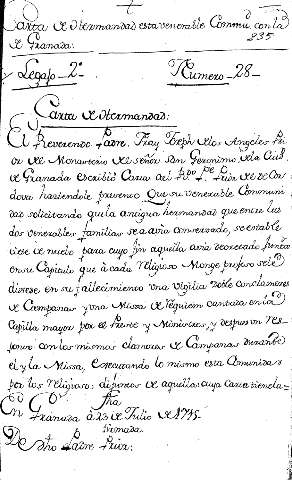 Carta de Hermandad esta venerable Commu.d con la
de Granada.
235
Legajo - 2º
Numero - 28 -
Carta de Hermandad:
El Reverendo Padre Fray Joseph de los Angeles Pri
or de Monasterio de señor San Geronimo de la Ciud
de Granada escribió Carta al Prior de Cor
dova haciendole presente Que su venerable Communi
dad solicitando que la antigua hermandad que entre las
dos venerables familias se avia conservado, se estable
ciese de nuevo para cuyo fin aquella avia decretado
en su Capitulo que à cada Religioso Monge profeso se le
diesese en su fallecimiento una vigilia doble con clamores
de Campanas y una Missa de Requiem cantada en la
Capilla mayor por el Preste y Ministros, y despues un Res
ponso con los mismos clamores de Campanas durante
el y la Missa, executando lo mismo esta Comunidad
por los Religiosos difuntos de aquella cuya Carta tiene la
fha
Granada à 23 de Julio de 1745.
firmada.
De dho Padre Prior.